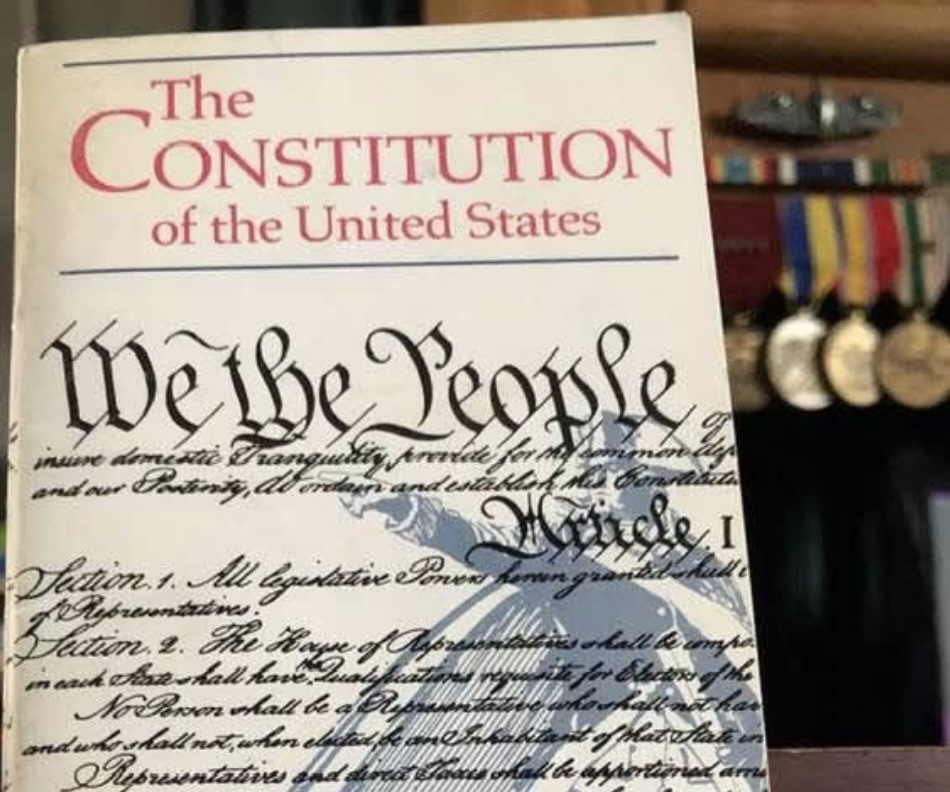 The
CONSTITUTION
of the United States
We the People
insure domestic Tranquility, provide for the common
and our Posterity, do ordain and establish this
Article. I
Section. 1. All legislative Powers herein granted shall
of Representatives.
Section. 2. The House of Representatives shall be
in each State shall have the Qualifications requisite for Electors of the
No Person shall be a Representative who shall not
and who shall not, when elected, be an Inhabitant of that State in
Representatives and direct Taxes shall be apportioned